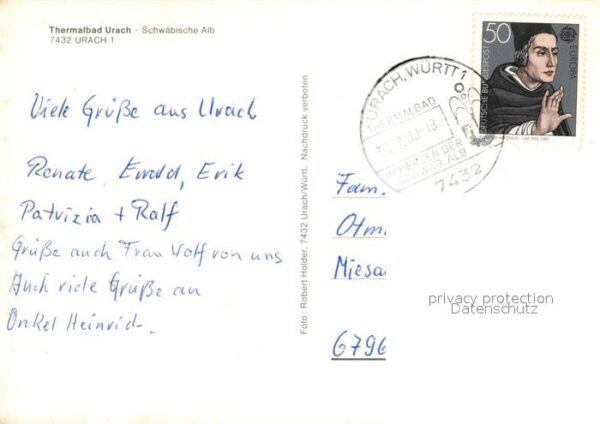 Thermalbad Urach - Schwäbische Alb
7432 URACH 1
Viele Grüße aus Urach
Renate, Ewald, Erik
Patrizia + Ralf
Grüße auch Frau Wolf von uns
Auch viele Grüße an
Onkel Heinrich.
Foto: Robert Holder, 7432 Urach/Württ. Nachdruck verboten
URACH, WÜRTT 1
THERMALBAD
IM HERZEN DER
SCHWÄB. ALB
7432
50
DEUTSCHE BUNDESPOST
EUROPA
Fam.
Otm
Miesa
6796
privacy protection
Datenschutz